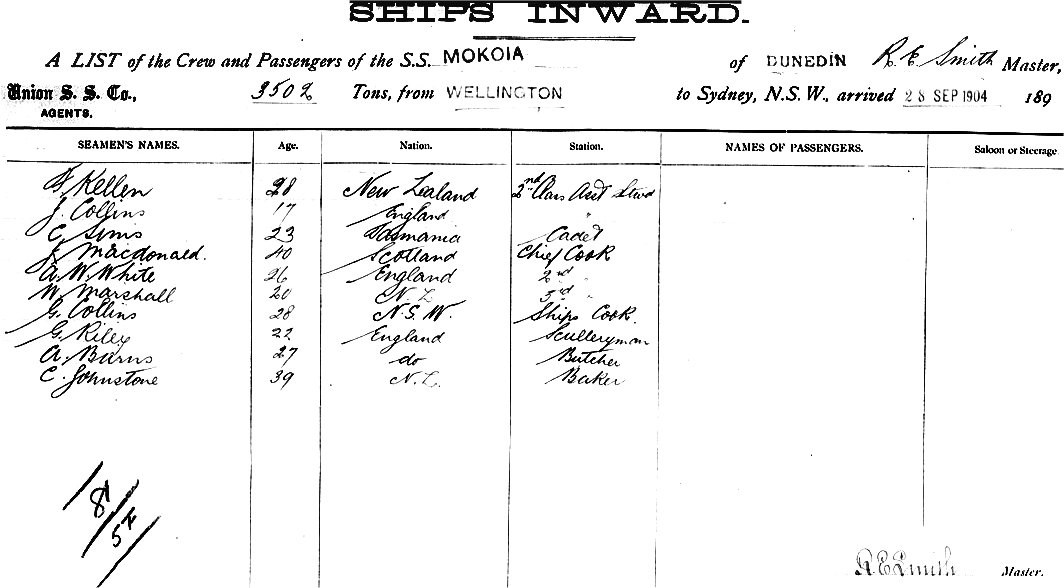 SHIPS INWARD.
A LIST of the Crew and Passengers of the S.S. MOKOIA of DUNEDIN R E Smith Master,
Union S. S. Co., 3502 Tons, from WELLINGTON to Sydney, N.S.W., arrived 28 SEP 1904 189
AGENTS.
SEAMEN'S NAMES. Age. Nation. Station. NAMES OF PASSENGERS. Saloon or Steerage
F. Kellen 28 New Zealand 2nd Class Asst Stwd
J. Collins 17 England "
C. Sims 23 Tasmania Cadet
J. Macdonald. 40 Scotland Chief Cook
A. W. White 26 England 2nd "
W. Marshall 20 N.Z. 3rd "
G. Collins 28 N.S.W. Ships Cook
G. Riley 22 England Sculleryman
A. Burns 27 do Butcher
C. Johnstone 39 N.Z. Baker
R E Smith Master.